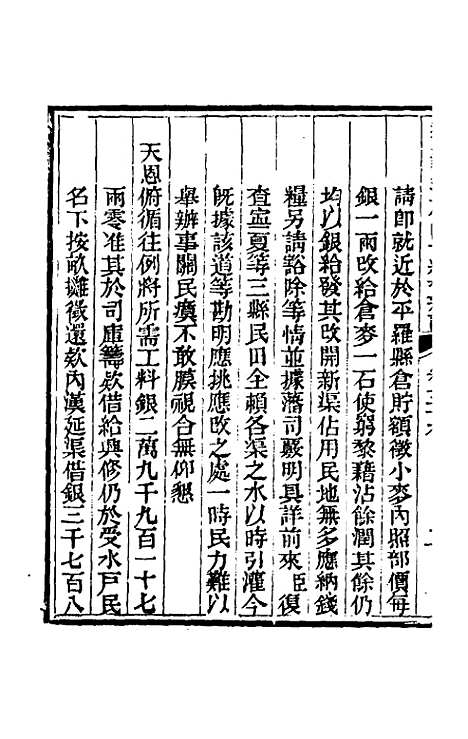 請卽就近於平羅縣倉貯額徵小麥內照部價每
銀一兩改給倉麥一石使窮黎藉沾餘潤其餘仍
均以銀給發其改開新渠佔用民地無多應納錢
糧另請豁除等情並據藩司覈明具詳前來臣復
查寧夏等三縣民田全頼各渠之水以時引灌今
旣據該道等勘明應挑應改之處一時民力難以
舉辦事關民瘼不敢膜視合無仰懇
天恩俯循往例將所需工料銀二萬九千九百一十七
兩零准其於司庫籌欵借給興修仍於受水戶民
名下按畝攤徵還欵內漢延渠借銀三千七百八